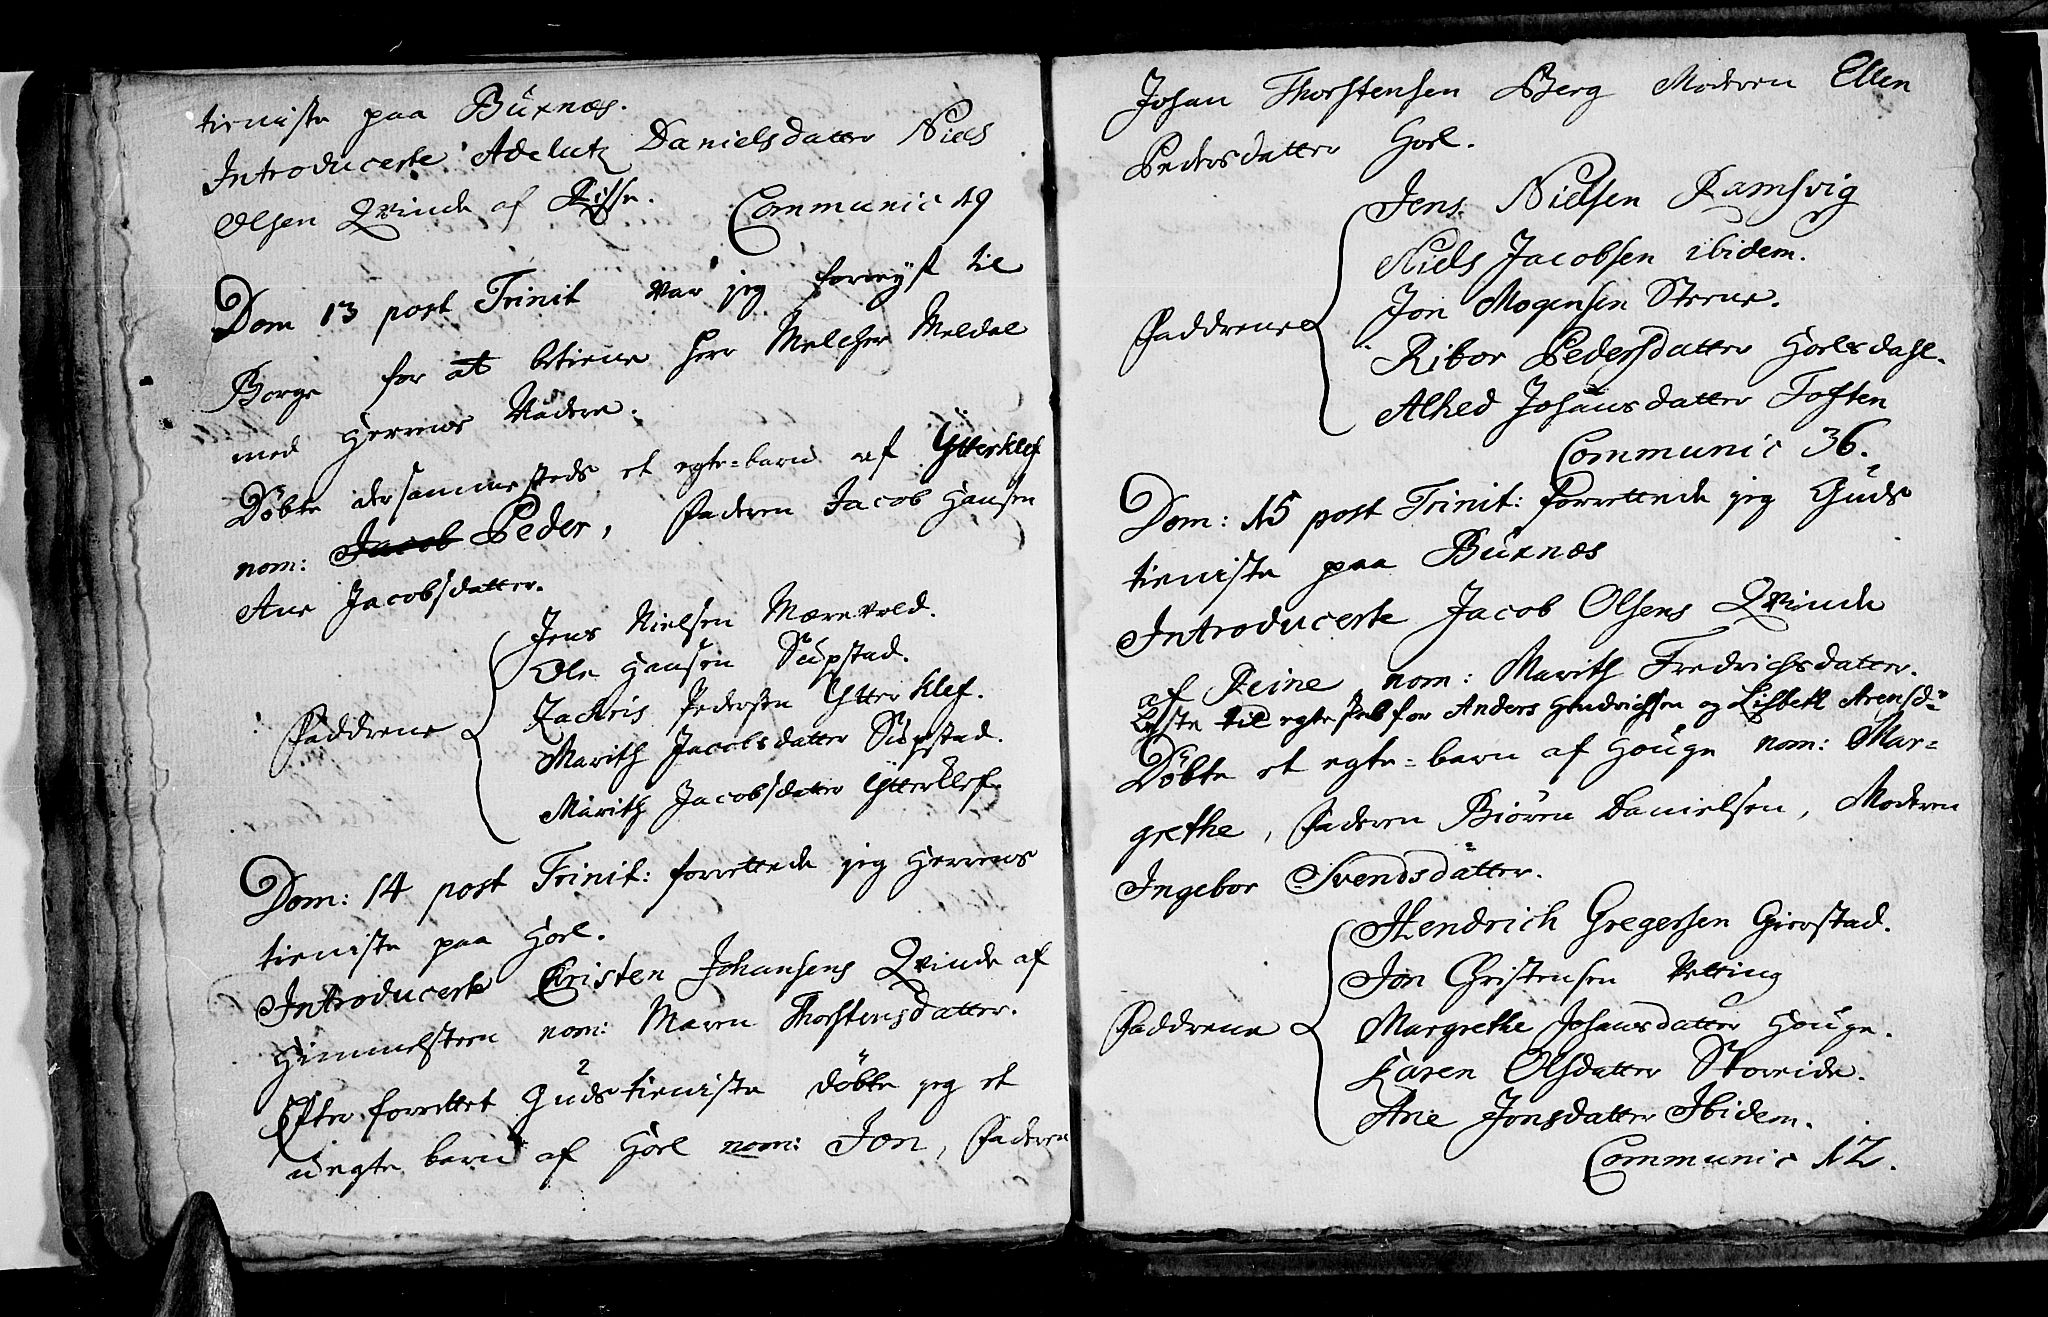 tieniste paa Buxnæs.
Introducerte Adelutz Danielsdatter Niels
Olsen Qvinde af Risse. Communic 19
Dom 13 post Trinit var jeg forreyst til
Borge for at betiene Herr Melcher Meldal
med Herrens Nadere.
Døbte dersammesteds et egte-barn af Ytterklef
nom: Jacob Peder, Faderen Jacob Hansen
Ane Jacobsdatter.
Jens Nielsen Mærevold.
Ole Hansen Supstad.
Zachris Pedersen Ytterklef.
Faddrene
Marith Jacobsdatter Supstad.
Marith Jacobsdatter Ytterklef.
Dom: 14 post Trinit: forrettede jeg Herrens
tieniste paa Hoel.
Introducerte Christen Johansens Qvinde af
Himmelsteen nom: Maren Thorstensdatter.
Efter forrettet Guds tieniste døbte jeg et
uegte barn af Hoel nom: Jon, Faderen
Johan Thorstensen Berg Moderen Ellen
Pedersdatter Hoel.
Jens Nielsen Ramsvig
Niels Jacobsen ibidem.
Jon Mogensen Steene.
Faddrene
Ribor Pedersdatter Hoelsdahl.
Alhed Johansdatter Toften
Communic 36.
Dom: 15 post Trinit: forrettede jeg Guds
tieniste paa Buxnæs
Introducerte Jacob Olsens Qvinde
af Reine nom: Marith Fredrichsdatter.
Lyste til egteskab for Anders Hendrichsen og Lisbeth Arensd:
Døbte et egte-barn af Houge nom: Mar-
grethe, Faderen Biören Danielsen, Moderen
Ingebor Svendsdatter.
Hendrich Gregersen Gierstad.
Jon Christensen Vetting
Faddrene
Margrethe Johansdatter Houge.
Karen Olsdatter Storeide.
Ane Jonsdatter Ibidem.
Communic 12.